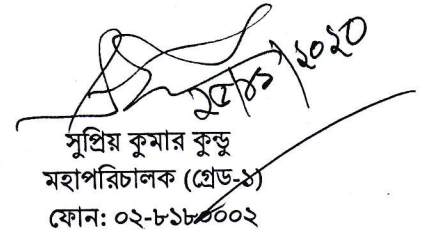 সুপ্রিয় কুমার কুন্ডু
মহাপরিচালক (গ্রেড-১)
ফোন: ০২-৮১৮০০০২